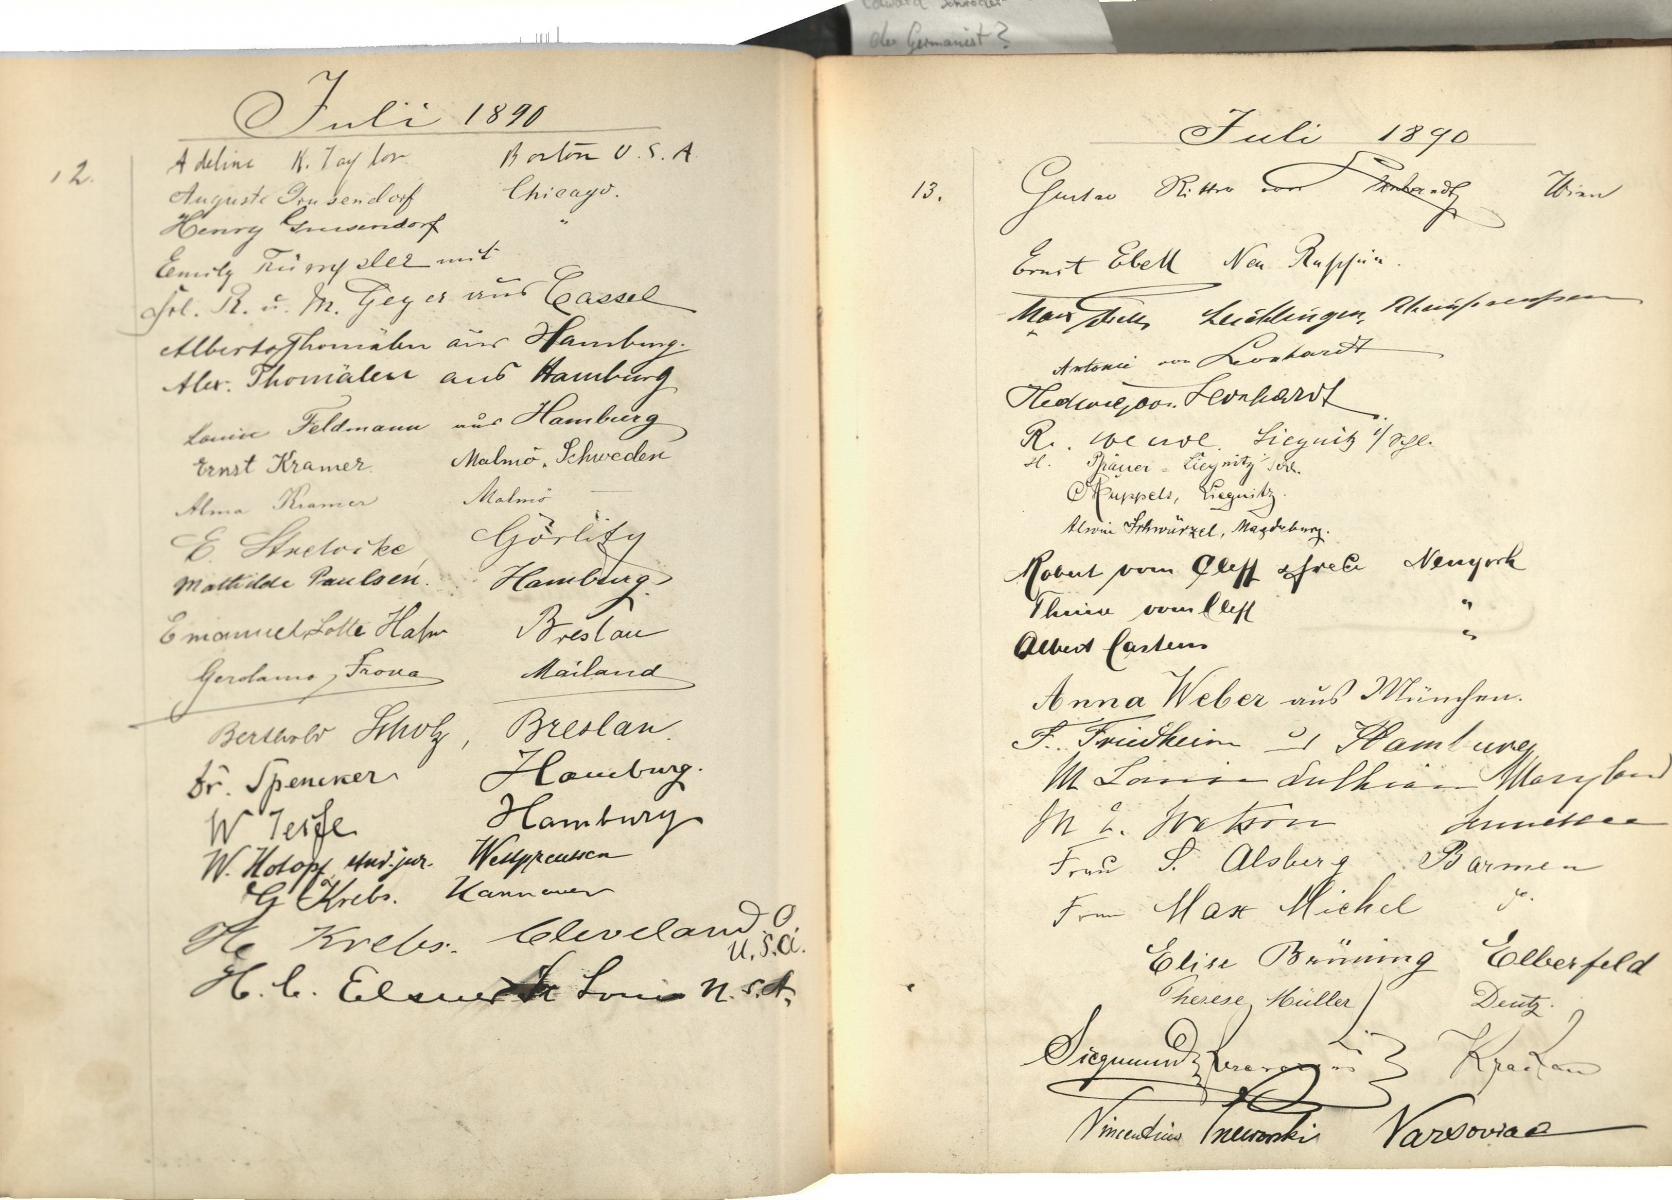 der Germanist?
Juli 1890
12.
Adeline K. Taylor Boston U.S.A
Auguste Grusendorf Chicago.
Henry Grusendorf "
Emily mit
Frl. R. u. M. Geyer aus Cassel
Alberto Thomälen aus Hamburg.
Alex. Thomälen aus Hamburg
Louise Feldmann aus Hamburg
Ernst Kramer Malmö, Schweden
Alma Kramer Malmö
E. Görlitz
Mathilde Paulsen. Hamburg.
Emanuel Lotte Hahn Breslau
Gerolamo Frova Mailand
Berthold Scholz, Breslau.
Dr. Spencker Hamburg.
W Hamburg
W. Hotopf, stud. jur. Westpreussen
G Krebs. Hannover
Krebs. Cleveland O.
U.S.A.
H. C. Elsner St Louis U.S.A.
Juli 1890
13.
Gustav Ritter von Wien
Ernst Ebell Neu Ruppin.
Max Leichlingen, Rheinpreussen
Antonie von Leonhardt
Hedwig von Leonhardt
R. Liegnitz i/Schl.
H. Liegnitz Schl.
Ruppels, Liegnitz.
Alwin Schwürzel, Magdeburg.
Robert vom Cleff & Newyork
vom Cleff "
Albert Carstens "
Anna Weber aus München.
F. Friedheim Hamburg
M Louise Maryland
M L. Watson Tennessee
Frau S. Alsberg Barmen
Frau Max Michel
Elise Brüning Elberfeld
Therese Müller Deutz.
Siegmund Krakau
Vincentius Varsoviae